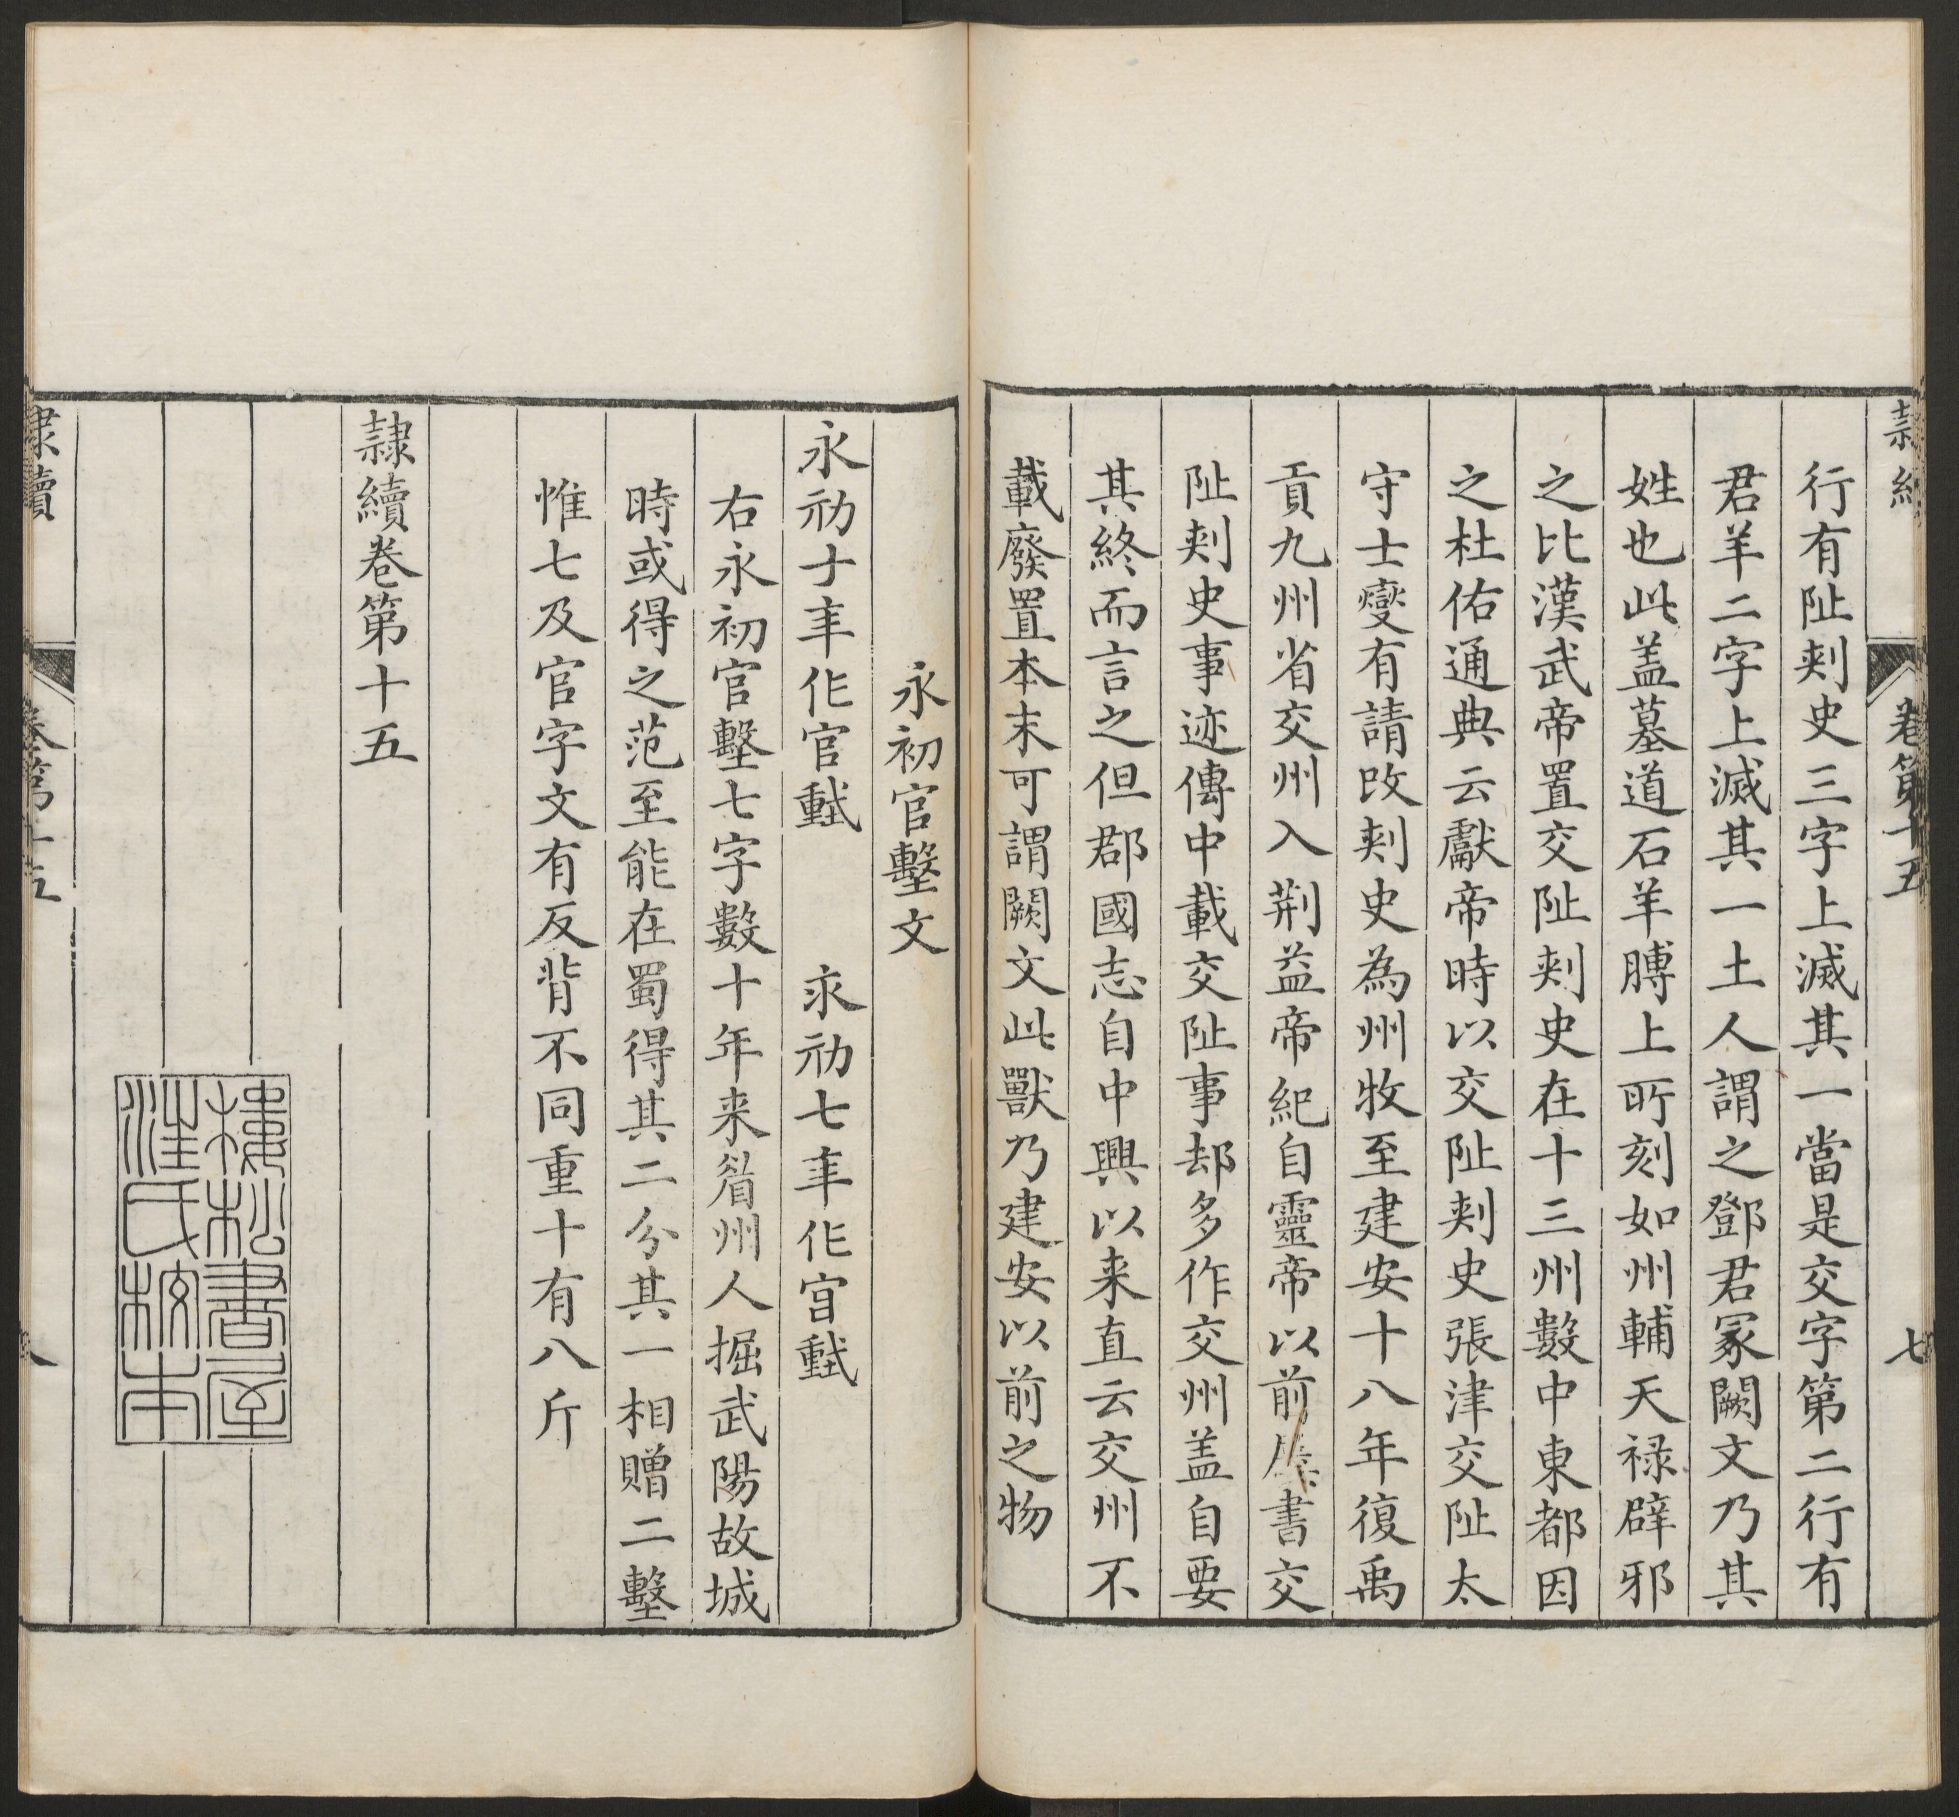 隸續
卷第十五
七
行有阯刾史三字上滅其一當是交字第二行有
君羊二字上滅其一土人謂之鄧君冢闕文乃其
姓也此盖墓道石羊膊上所刻如州輔天禄辟邪
之比漢武帝置交阯刾史在十三州數中東都因
之杜佑通典云獻帝時以交阯刾史張津交阯太
守士燮有請改刾史為州牧至建安十八年復禹
貢九州省交州入荆益帝紀自靈帝以前書交
阯刾史事迹傳中載交阯事却多作交州盖自要
其終而言之但郡國志自中興以来直云交州不
載廢置本末可謂闕文此獸乃建安以前之物
永初官墼文
永初十年作官墼　永初七年作官墼
右永初官墼七字數十年来眉州人掘武陽故城
時或得之范至能在蜀得其二分其一相贈二墼
惟七及官字文有反背不同重十有八斤
隸續卷第十五
樓松書屋
汪氏校本
隸續
卷第十五
八